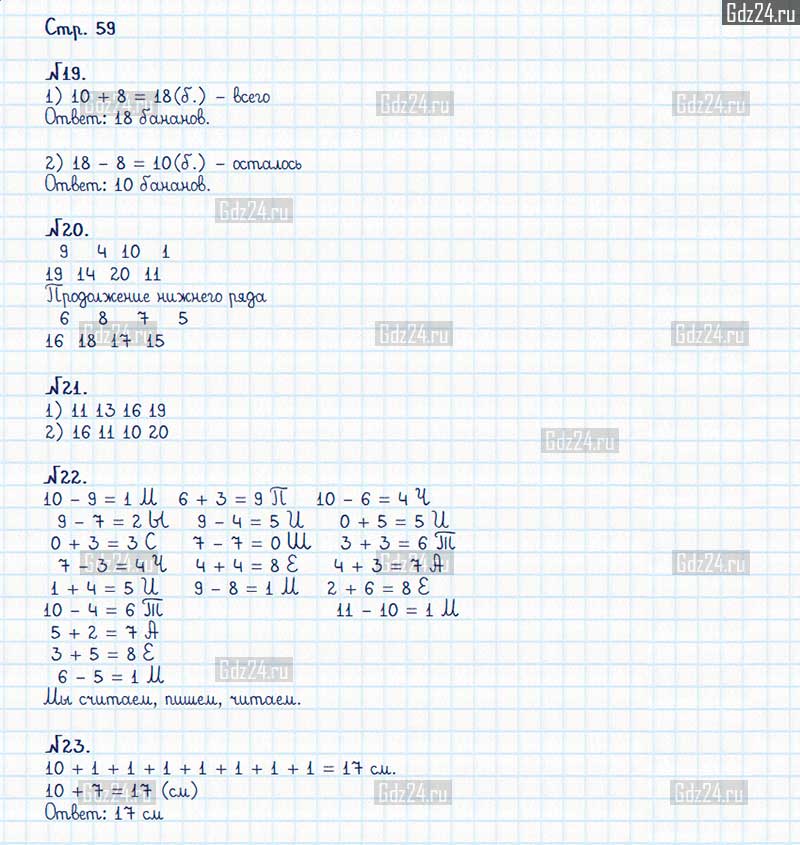 Gdz24.ru
Стр. 59
№19.
1) 10 + 8 = 18(б.) – всего
Ответ: 18 бананов.
2) 18 – 8 = 10(б.) – осталось
Ответ: 10 бананов.
№20.
9 4 10 1
19 14 20 11
Продолжение нижнего ряда
6 8 7 5
16 18 17 15
№21.
1) 11 13 16 19
2) 16 11 10 20
№22.
10 – 9 = 1 М 6 + 3 = 9 П 10 – 6 = 4 Ч
9 – 7 = 2 Ы 9 – 4 = 5 И 0 + 5 = 5 И
0 + 3 = 3 С 7 – 7 = 0 Ш 3 + 3 = 6 Т
7 – 3 = 4 Ч 4 + 4 = 8 Е 4 + 3 = 7 А
1 + 4 = 5 И 9 – 8 = 1 М 2 + 6 = 8 Е
10 – 4 = 6 Т 11 – 10 = 1 М
5 + 2 = 7 А
3 + 5 = 8 Е
6 – 5 = 1 М
Мы считаем, пишем, читаем.
№23.
10 + 1 + 1 + 1 + 1 + 1 + 1 + 1 = 17 см.
10 + 7 = 17 (см)
Ответ: 17 см